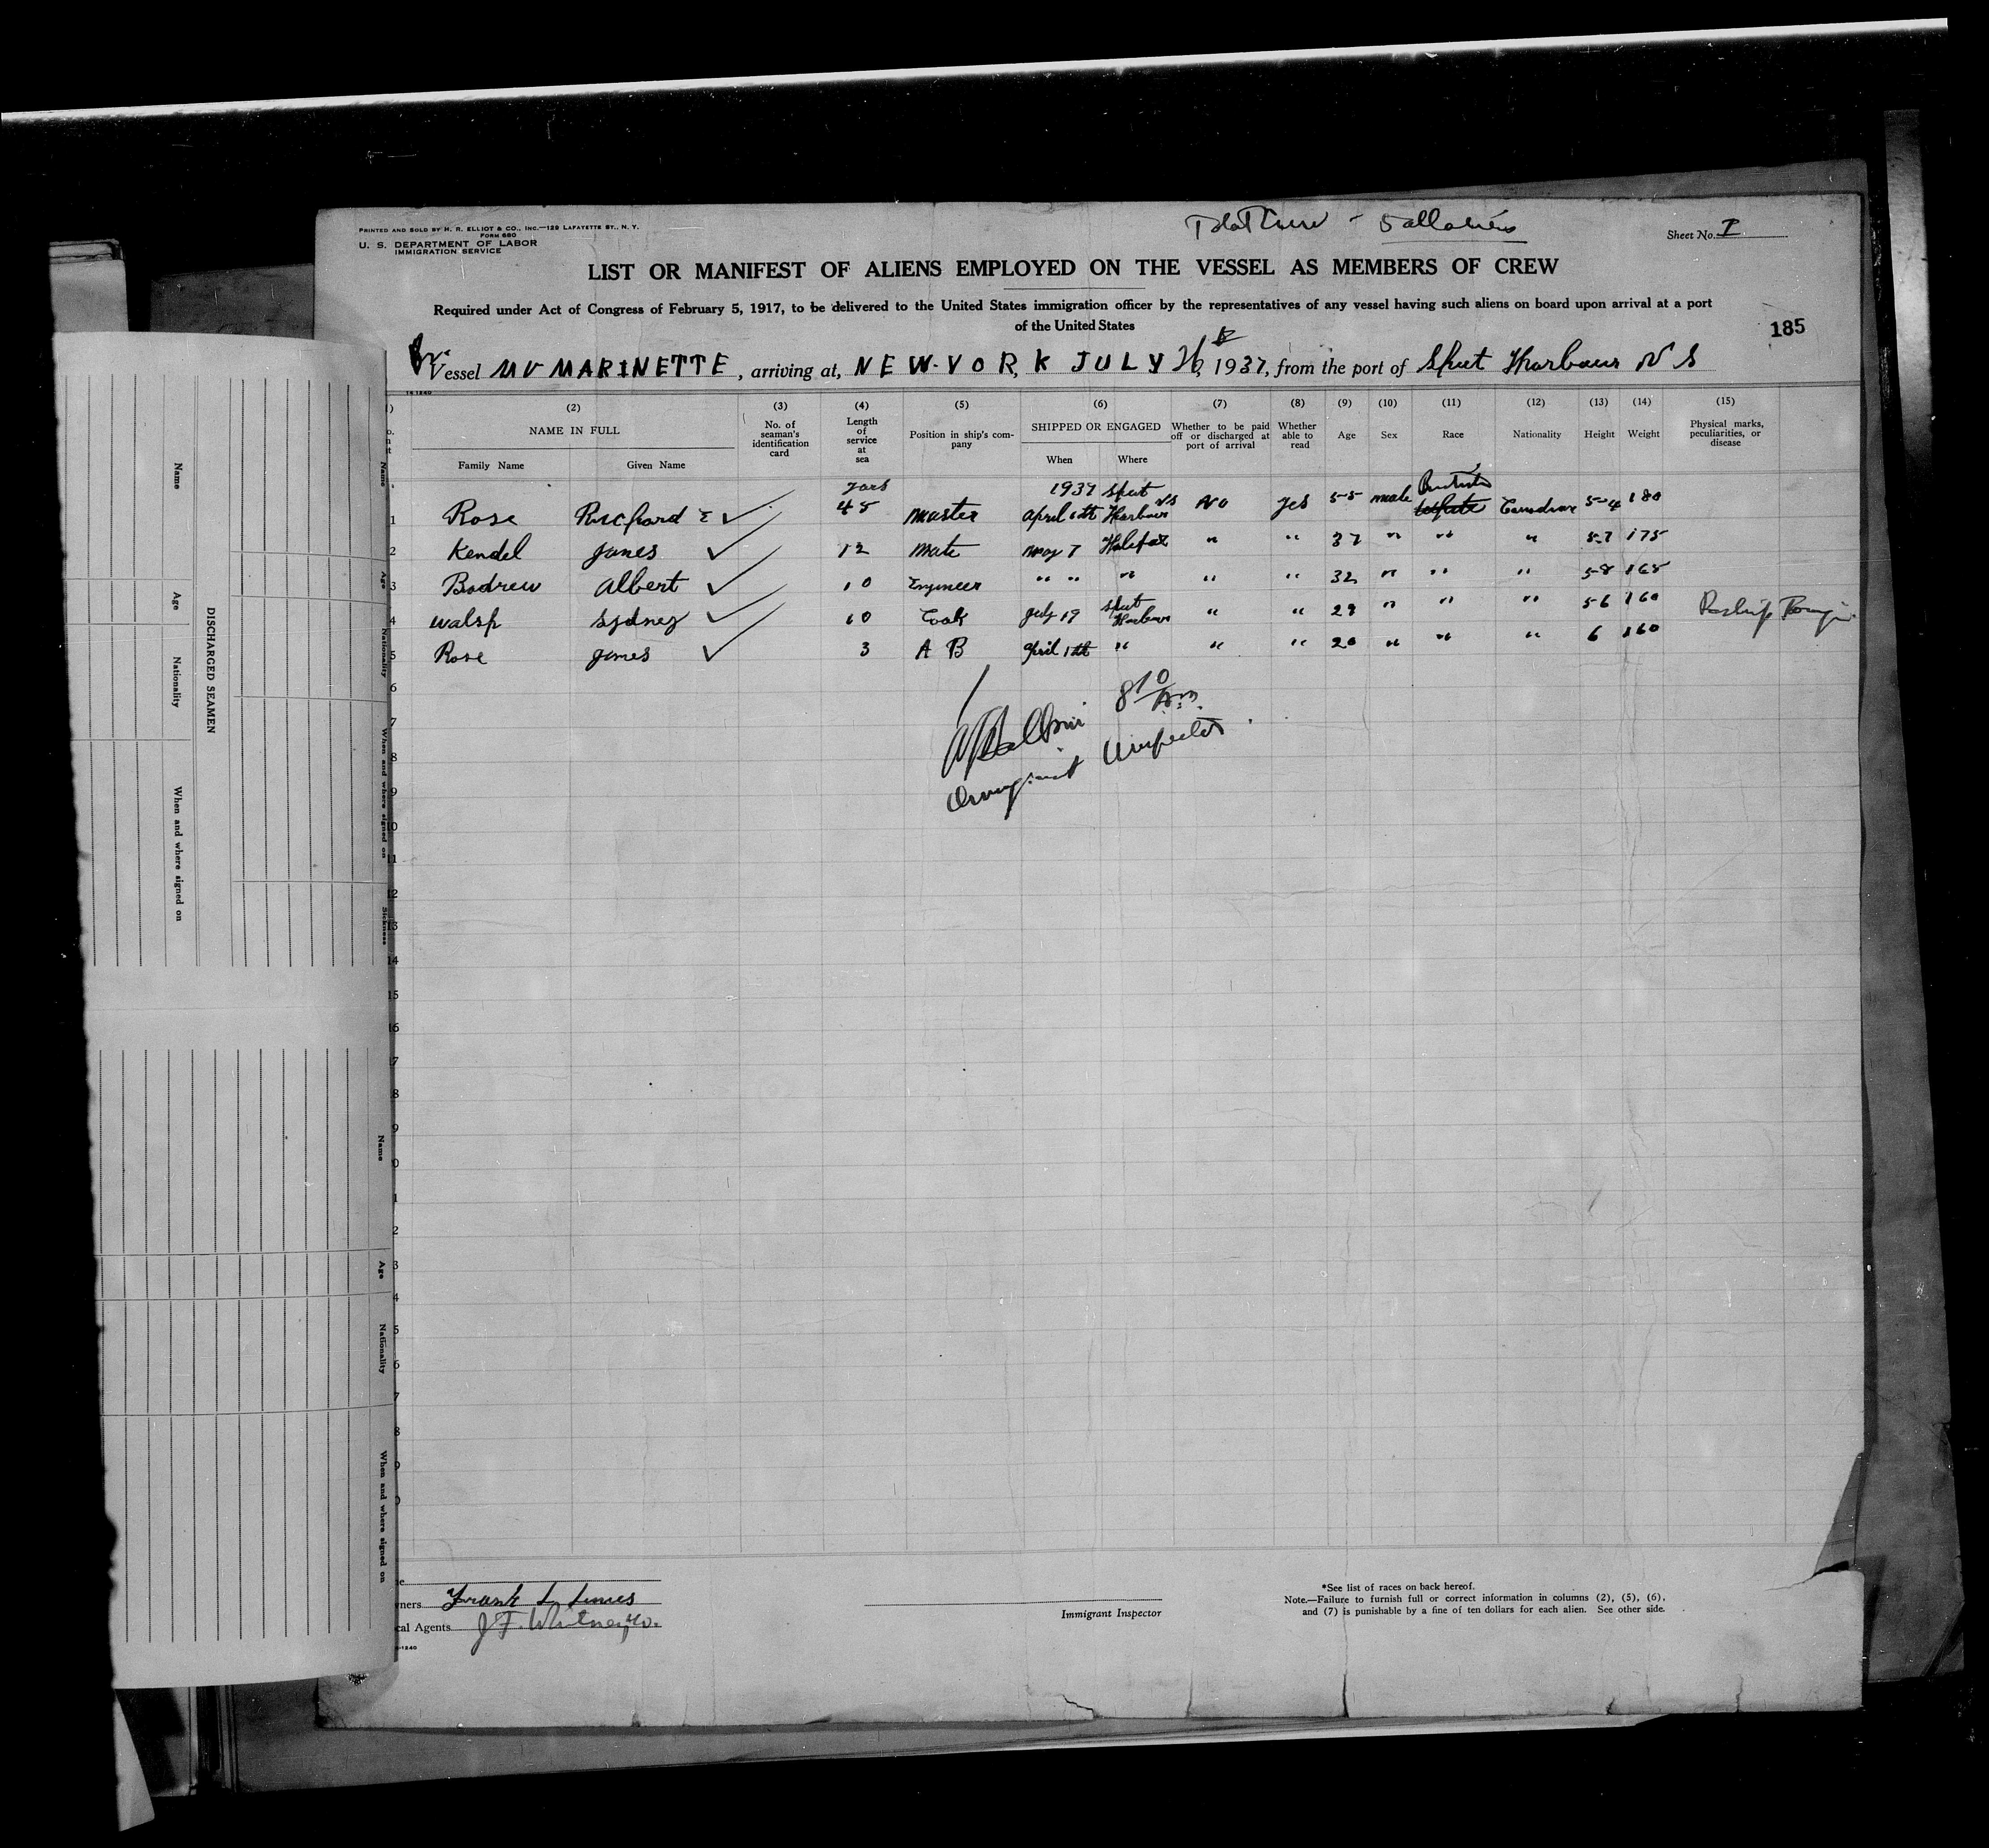 PRINTED AND SOLD BY H. R. ELLIOT & CO., INC.—129 LAFAYETTE ST., N. Y.
FORM 680
U. S. DEPARTMENT OF LABOR
IMMIGRATION SERVICE
Sheet No. I
LIST OR MANIFEST OF ALIENS EMPLOYED ON THE VESSEL AS MEMBERS OF CREW
Required under Act of Congress of February 5, 1917, to be delivered to the United States immigration officer by the representatives of any vessel having such aliens on board upon arrival at a port
of the United States
185
Vessel MV MARINETTE, arriving at, NEW-YORK JULY, 1937, from the port of Harbour N S
14 1240
(2) (3) (4) (5) (6) (7) (8) (9) (10) (11) (12) (13) (14) (15)
NAME IN FULL
Family Name Given Name
No. of seaman's identification card
Length of service at sea
Position in ship's company
SHIPPED OR ENGAGED
When Where
Whether to be paid off or discharged at port of arrival
Whether able to read
Age
Sex
Race
Nationality
Height
Weight
Physical marks, peculiarities, or disease
1937
1 Rose E Master April Harbour NS No yes 55 male White Canadian 5-4 180
2 Kendel James 12 Mate May 7 Halifax " " 37 " " " 5-7 175
3 Albert 10 Engineer " " " " " 32 " " " 5-8 165
4 Walsh Sydney 10 Cook July 19 Harbour " " 29 " " " 5-6 160
5 Rose James 3 A B April " " " 20 " " " 6 160
6
7
8
9
10
11
12
13
14
15
16
8 10 A.m.
Immigrant Inspector
Frank L.
J. F. Whitney & Co.
cal Agents
Immigrant Inspector
*See list of races on back hereof.
Note.—Failure to furnish full or correct information in columns (2), (5), (6),
and (7) is punishable by a fine of ten dollars for each alien. See other side.
DISCHARGED SEAMEN
Name
Age
Nationality
When and where signed on
Name
Age
Nationality
When and where signed on
Sickness
Name
Age
Nationality
When and where signed on